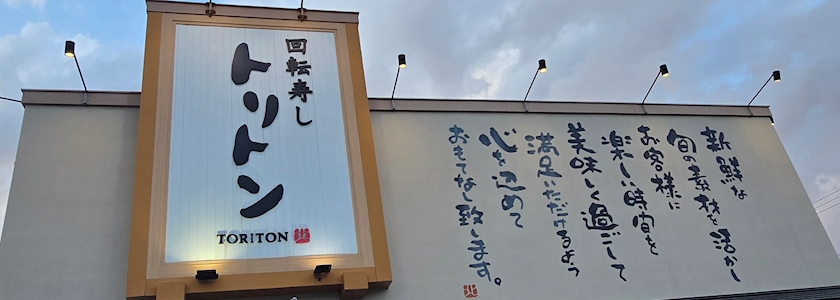 回転寿し
トリトン
TORITON
新鮮な
旬の素材を活かし
お客様に
楽しい時間を
美味しく過ごして
満足いただけるよう
心を込めて
おもてなし致します。